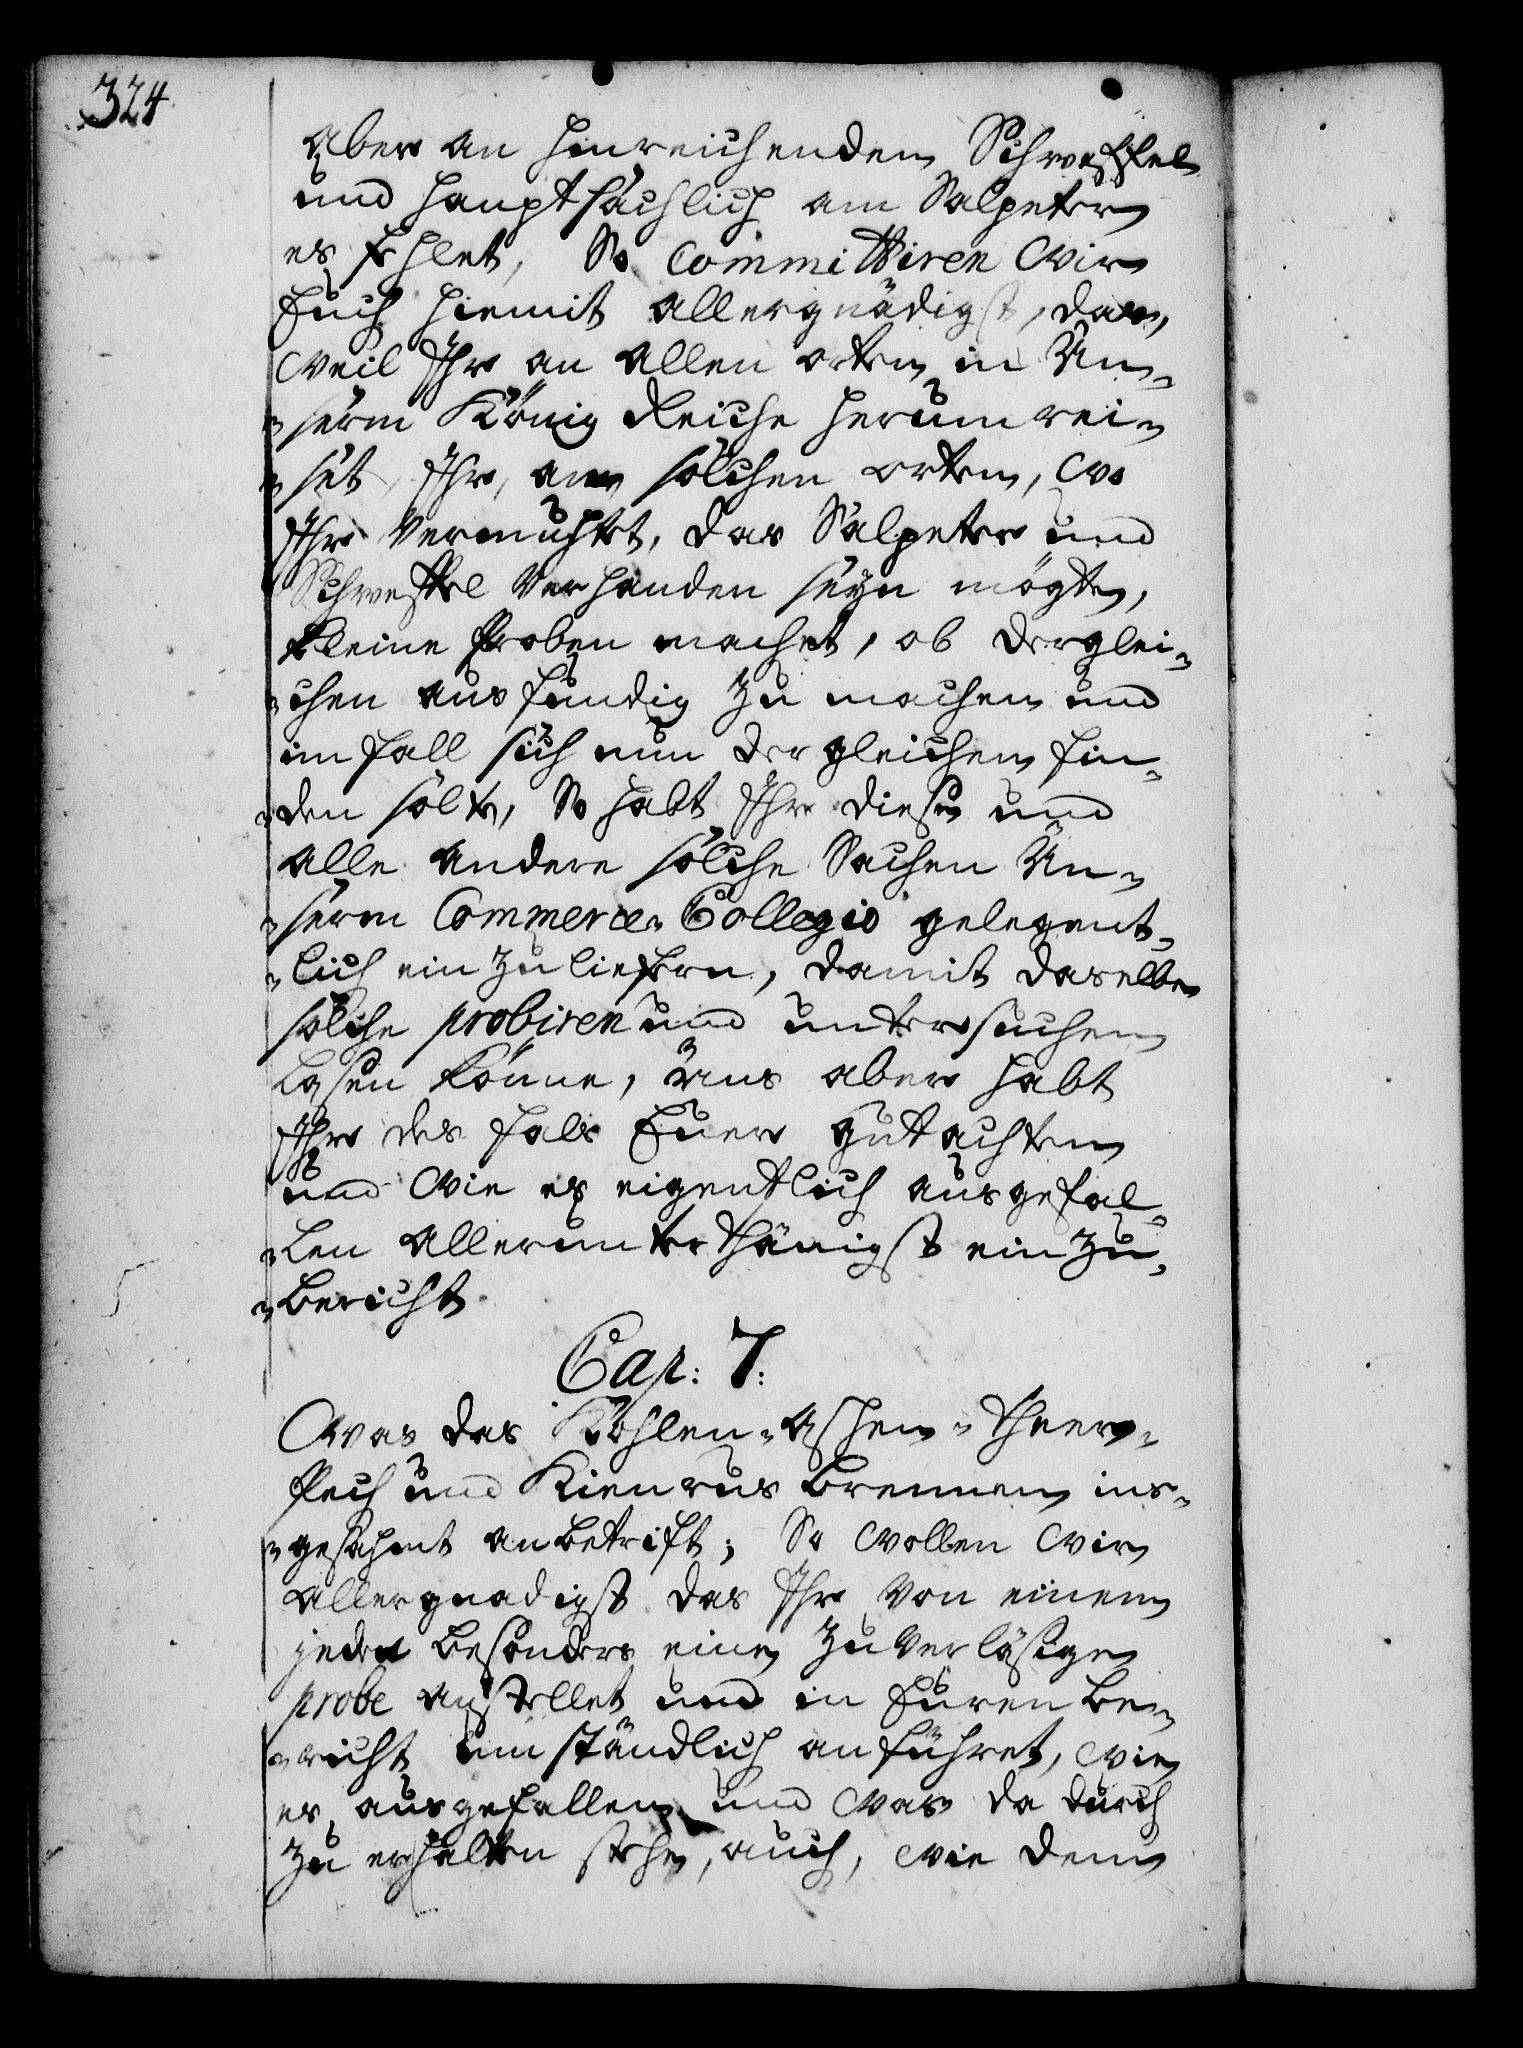 324
aber an hinreichenden Schweffel
und hauptsächlich am Salpeter
es fehlet, So committiren Wir
Euch hiemit allergnädigst, das,
weil Ihr an allen orten in Un-
-serm König Reiche herum rei-
-set, Ihr, an solchen orten, wo
Ihr vermuhtet, das Salpeter und
Schweffel verhanden seyn mögte,
kleine Proben machet, ob derglei-
-chen ausfündig zu machen und
im fall sich nun dergleichen fin-
-den solte, So habt Ihr diese und
alle andere solche Sachen Un-
-serm Commerce-Collegio gelegent-
-lich ein zu liefern, damit daselbe
solche probiren und untersuchen
lasen könne, Uns aber habt
Ihr des fals Euer gutachten
und wie es eigentlich ausgefal-
-len allerunterthänigst ein zu-
-bericht.
Cap: 7:
Was das Kohlen-Aschen-Theer-
Pech und Kienrus brennen ins-
-gesahmt anbetrift; So wollen Wir
allergnadigst das Ihr von einem
jeden besonders eine zuverläsige
probe anstellet und in Euren be-
-richt umständlich anführet, wie
es ausgefallen und was da durch
zu erhalten stehe, auch, wie dem